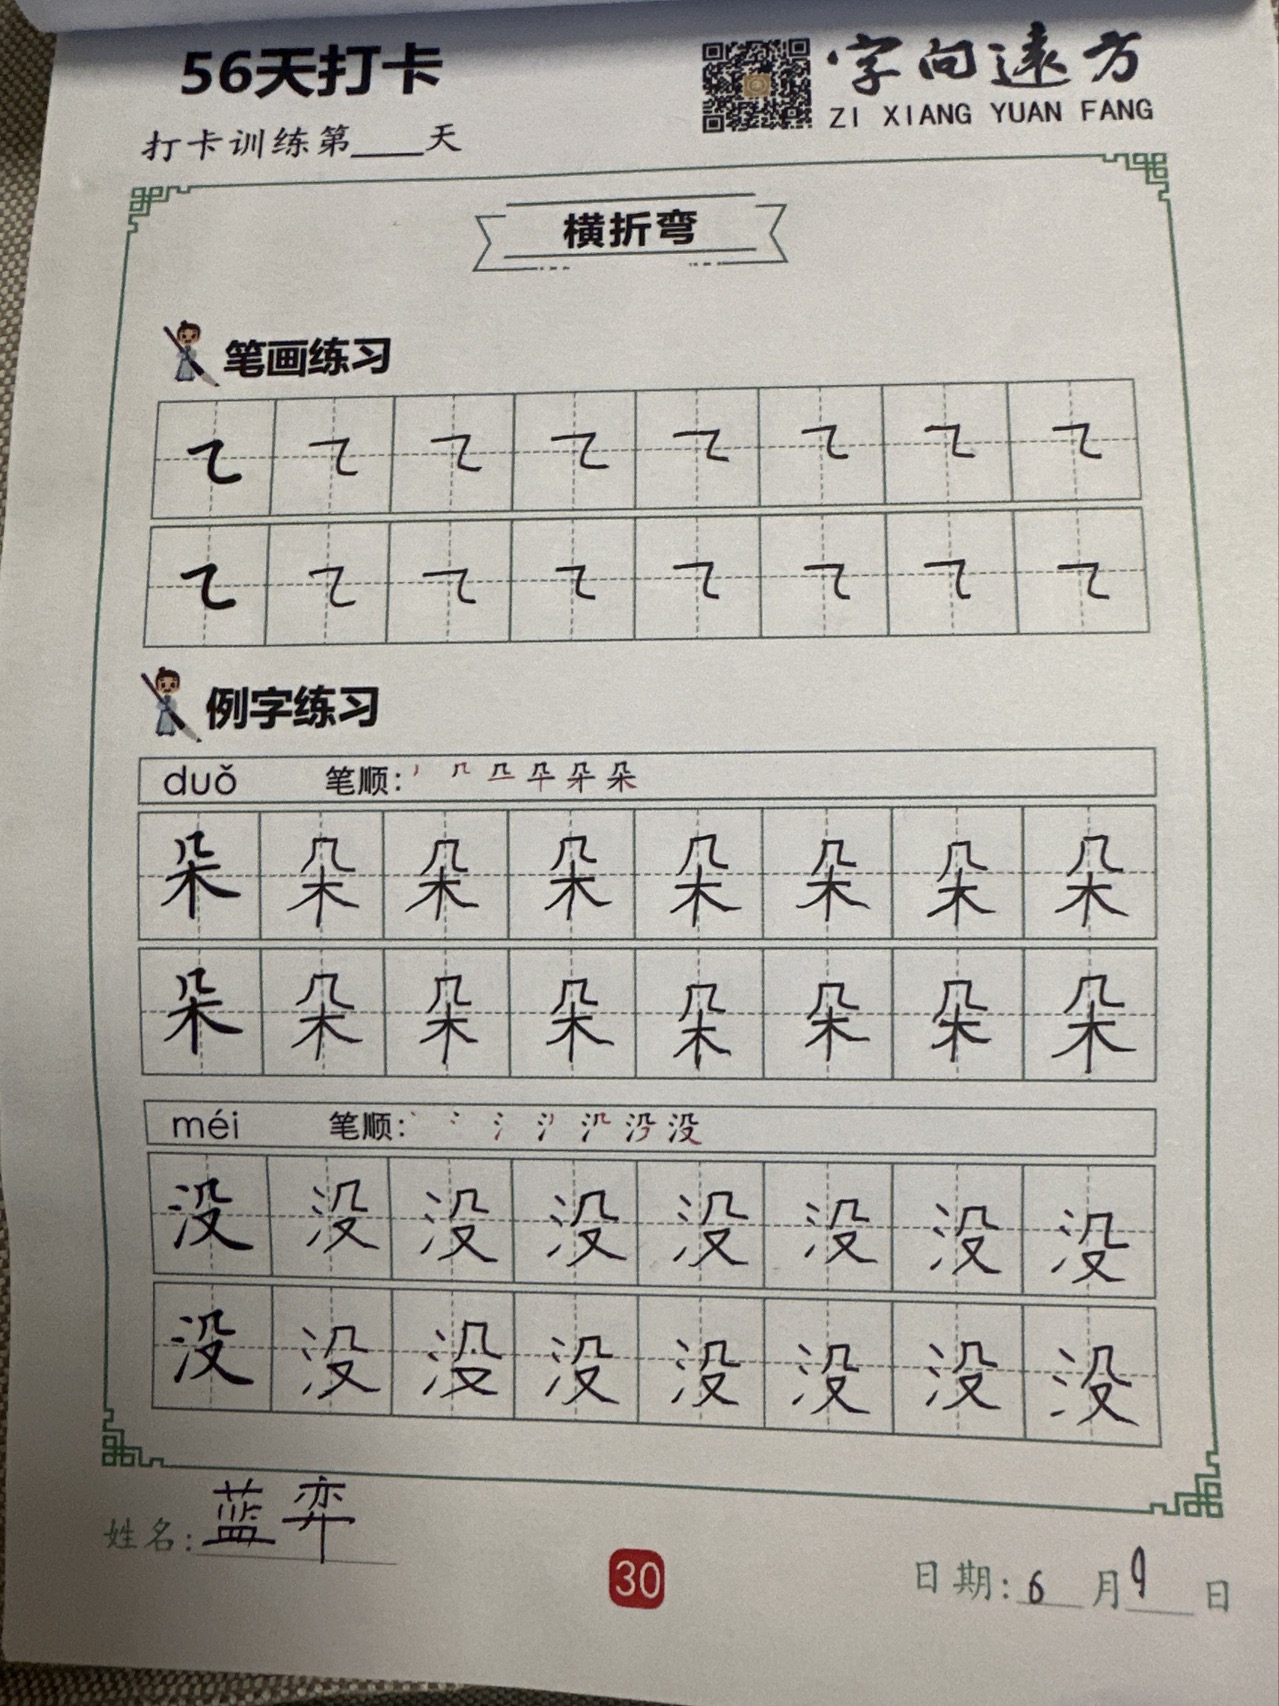 56天打卡
字向遠方
ZI XIANG YUAN FANG
打卡训练第____天
横折弯
笔画练习
㇍ ㇍ ㇍ ㇍ ㇍ ㇍ ㇍ ㇍
㇍ ㇍ ㇍ ㇍ ㇍ ㇍ ㇍ ㇍
例字练习
duǒ 笔顺: 朵
朵 朵 朵 朵 朵 朵 朵 朵
朵 朵 朵 朵 朵 朵 朵 朵
méi 笔顺: 没
没 没 没 没 没 没 没 没
没 没 没 没 没 没 没 没
姓名: 蓝弈
30
日期: 6 月 9 日